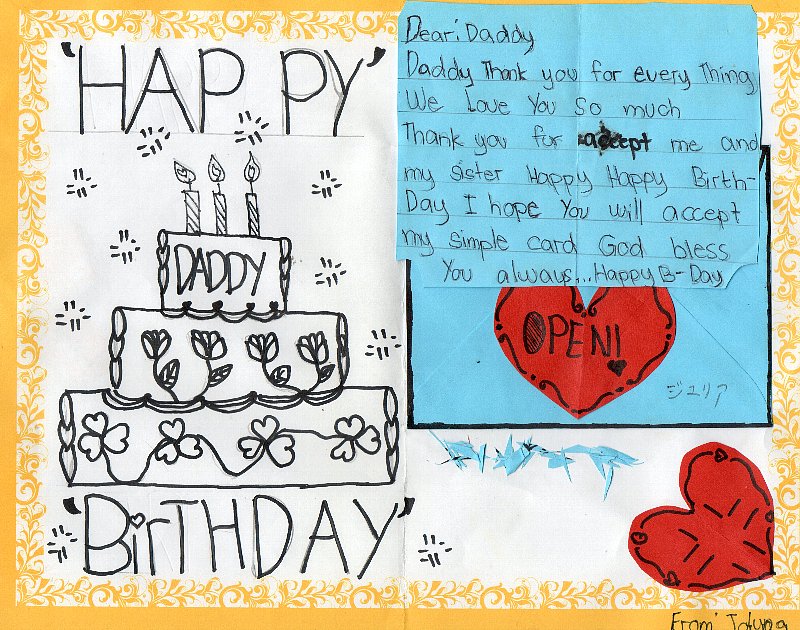 'HAPPY'
DADDY
'BirTHDAY'
Dear: Daddy
Daddy Thank you for every Thing
We Love You So much
Thank you for accept me and
my sister Happy Happy Birth-
Day I hope You will accept
my simple card God bless
You always...Happy B-Day
OPEN!
ジュリア
From: